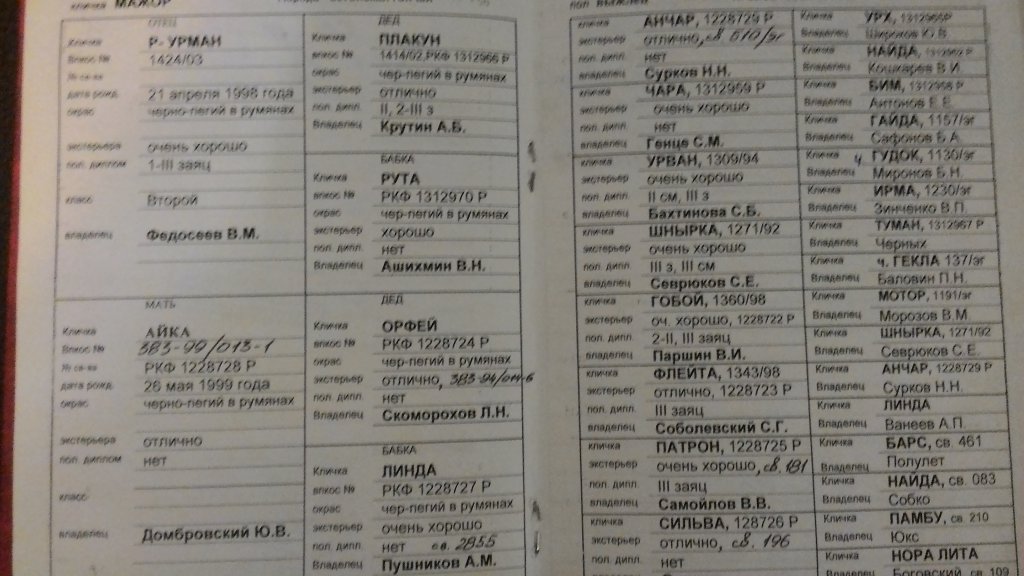 кличка МАЖОР
пол ВЫЖЛЕЦ
ОТЕЦ
Кличка Р- УРМАН
Впкос № 1424/03
№ св-ва
дата рожд. 21 апреля 1998 года
окрас черно-пегий в румянах
экстерьера очень хорошо
пол. диплом 1-III заяц
класс Второй
владелец Федосеев В.М.
МАТЬ
Кличка АЙКА
Впкос № 383-99/013-1
№ св-ва РКФ 1228728 Р
дата рожд. 26 мая 1999 года
окрас черно-пегий в румянах
экстерьера отлично
пол. диплом нет
класс
владелец Домбровский Ю.В.
ДЕД
Кличка ПЛАКУН
впкос № 1414/02,РКФ 1312966 Р
окрас чер-пегий в румянах
экстерьер отлично
пол. дипл. II, 2-III з
Владелец Крутин А.Б.
БАБКА
Кличка РУТА
впкос № РКФ 1312970 Р
окрас чер-пегий в румянах
экстерьер хорошо
пол. дипл. нет
Владелец Ашихмин В.Н.
ДЕД
Кличка ОРФЕЙ
впкос № РКФ 1228724 Р
окрас чер-пегий в румянах
экстерьер отлично, 383-94/011-6
пол. дипл. нет
Владелец Скоморохов Л.Н.
БАБКА
Кличка ЛИНДА
впкос № РКФ 1228727 Р
окрас чер-пегий в румянах
экстерьер очень хорошо
пол. дипл. нет св. 2855
Владелец Пушников А.М.
кличка АНЧАР, 1228729 Р
экстерьер отлично, св 510/эг
пол. дипл. нет
владелец Сурков Н.Н.
кличка ЧАРА, 1312959 Р
экстерьер очень хорошо
пол. дипл. нет
владелец Генце С.М.
кличка УРВАН, 1309/94
экстерьер очень хорошо
пол. дипл. II см, III з
владелец Бахтинова С.Б.
кличка ШНЫРКА, 1271/92
экстерьер очень хорошо
пол. дипл. III з, III см
владелец Севрюков С.Е.
кличка ГОБОЙ, 1360/98
экстерьер оч. хорошо, 1228722 Р
пол. дипл. 2-II, III заяц
владелец Паршин В.И.
кличка ФЛЕЙТА, 1343/98
экстерьер отлично, 1228723 Р
пол. дипл. III заяц
владелец Соболевский С.Г.
кличка ПАТРОН, 1228725 Р
экстерьер очень хорошо, св. 181
пол. дипл. III заяц
владелец Самойлов В.В.
кличка СИЛЬВА, 128726 Р
экстерьер отлично, св. 196
пол. дипл. нет
Кличка УРХ, 1312965Р
Владелец Широков Ю.В.
Кличка НАЙДА, 1312962 Р
Владелец Кошкарев В.И.
Кличка БИМ, 1312958 Р
Владелец Антонов Е.Е.
Кличка ГАЙДА, 1157/эг
Владелец Сафонов Б.А.
Кличка ч. ГУДОК, 1130/эг
Владелец Миронов Б.Н.
Кличка ИРМА, 1230/эг
Владелец Зинченко В.П.
Кличка ТУМАН, 1312967 Р
Владелец Черных
Кличка ч. ГЕКЛА 137/эг
Владелец Баловин П.Н.
Кличка МОТОР, 1191/эг
Владелец Морозов В.М.
Кличка ШНЫРКА, 1271/92
Владелец Севрюков С.Е.
Кличка АНЧАР, 1228729 Р
Владелец Сурков Н.Н.
Кличка ЛИНДА
Владелец Ванеев А.П.
Кличка БАРС, св. 461
Владелец Полулет
Кличка НАЙДА, св. 083
Владелец Собко
Кличка ПАМБУ, св. 210
Владелец Юкс
Кличка НОРА ЛИТА
Владелец Боговский, св. 109